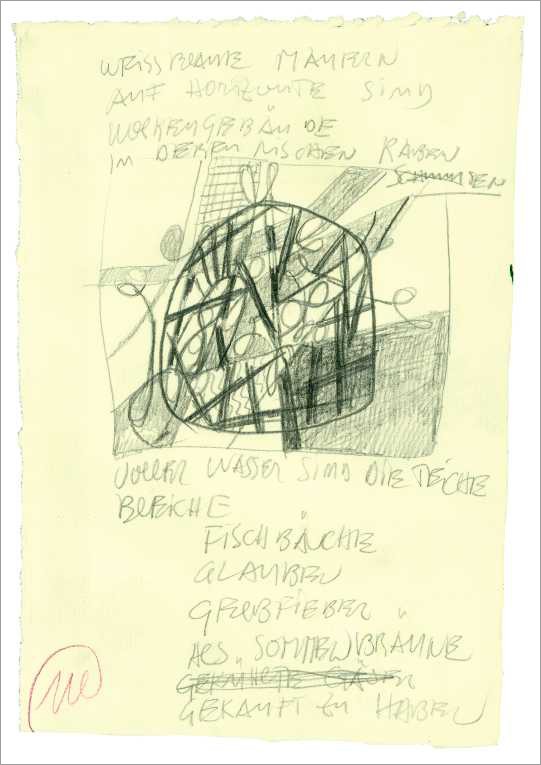 WEISSBLAUE MAUERN
AUF HORIZONTE SIND
WOLKENGEBÄUDE
IN DEREN NISCHEN RABEN
VOLLER WASSER SIND DIE TEICHE
BLEICHE
FISCHBÄUCHE
GLAUBEN
GELBFIEBER
ALS SOMMERBRÄUNE
GEKAUFT ZU HABEN